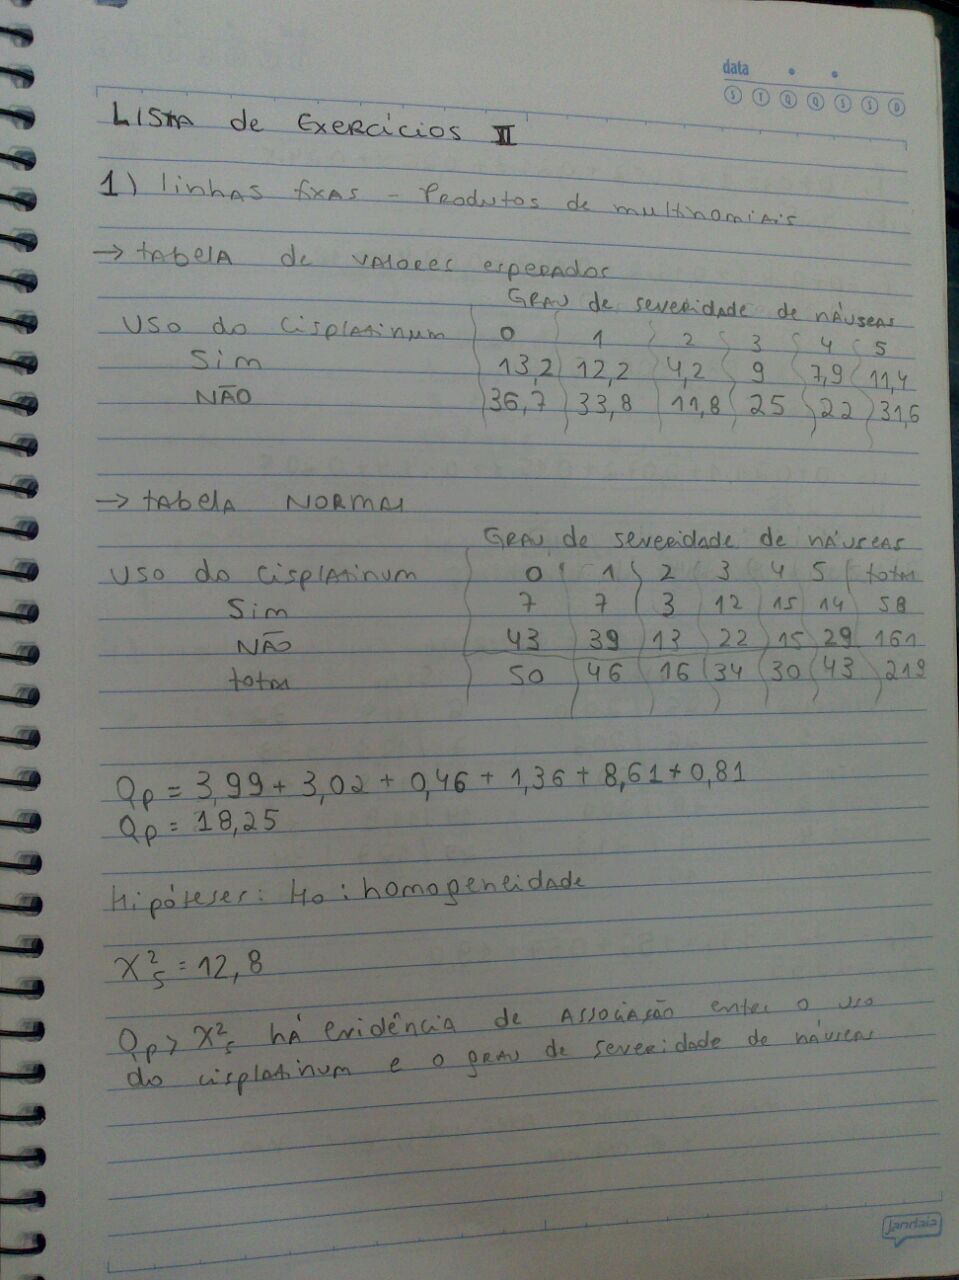 data
S T Q Q S S D
LISTA de Exercícios II
1) linhas fixas - Produtos de multinomiais
→ tabela de valores esperados
Grau de severidade de náuseas
Uso do cisplatinum 0 1 2 3 4 5
Sim 13,2 12,2 4,2 9 7,9 11,4
NÃO 36,7 33,8 11,8 25 22 31,6
→ tabela NORMAl
Grau de severidade de náuseas
Uso do cisplatinum 0 1 2 3 4 5 total
Sim 7 7 3 12 15 14 58
NÃO 43 39 13 22 15 29 161
total 50 46 16 34 30 43 219
Qp = 3,99 + 3,02 + 0,46 + 1,36 + 8,61 + 0,81
Qp = 18,25
Hipóteses: Ho: homogeneidade
X²₅ = 12,8
Qp > X²₅ há evidência de associação entre o uso
do cisplatinum e o grau de severidade de náuseas
Jandaia